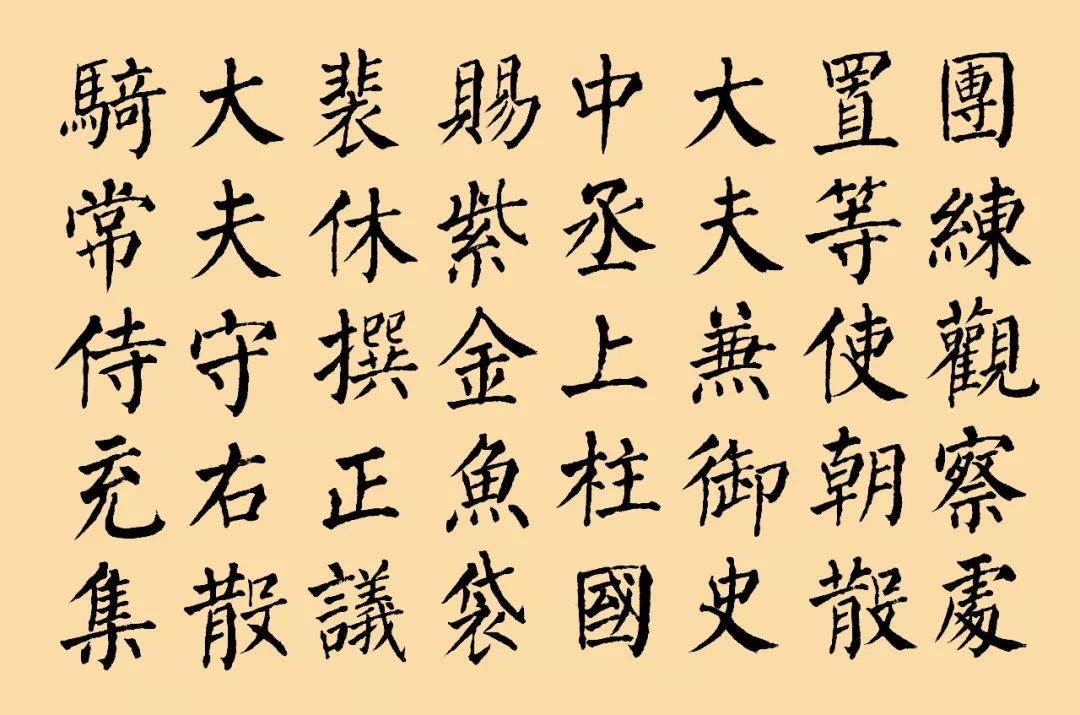 團練觀察處
置等使朝散
大夫兼御史
中丞上柱國
賜紫金魚袋
裴休撰正議
大夫守右散
騎常侍充集